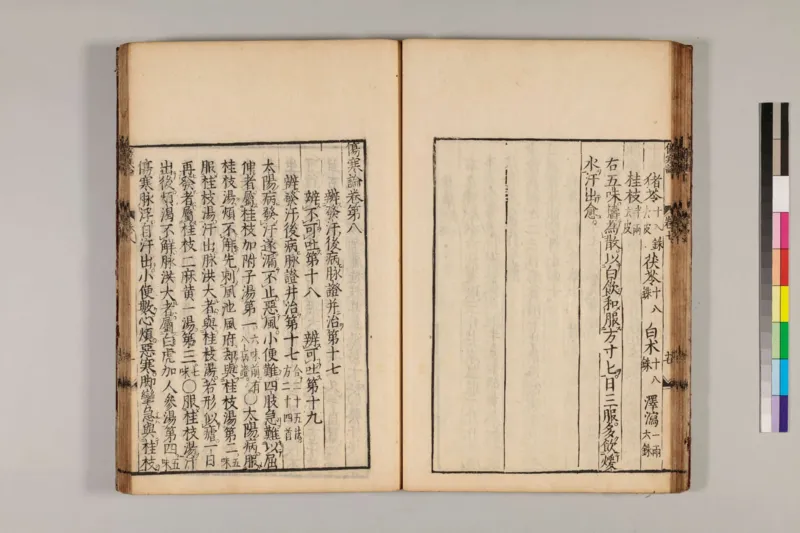 猪苓十八銖去皮 茯苓十八銖 白朮十八銖 澤瀉一兩六銖
桂枝半兩去皮
右五味爲散以白飲和服方寸匕日三服多飲煖
水汗出愈
傷寒論卷第八
辨發汗後病脉證并治第十七
辨不可吐第十八 辨可吐第十九
辨發汗後病脉證并治第十七合二十五法方二十四首
太陽病發汗遂漏不止惡風小便難四肢急難以屈
伸者屬桂枝加附子湯第一六味前有八病證○太陽病服
桂枝湯煩不解先刺風池風府却與桂枝湯第二五味
服桂枝湯汗出脉洪大者與桂枝湯若形似瘧一日
再發者屬桂枝二麻黃一湯第三七味○服桂枝湯汗
出後煩渴不解脉洪大者屬白虎加人參湯第四五味
傷寒脉浮自汗出小便數心煩惡寒脚攣急與桂枝